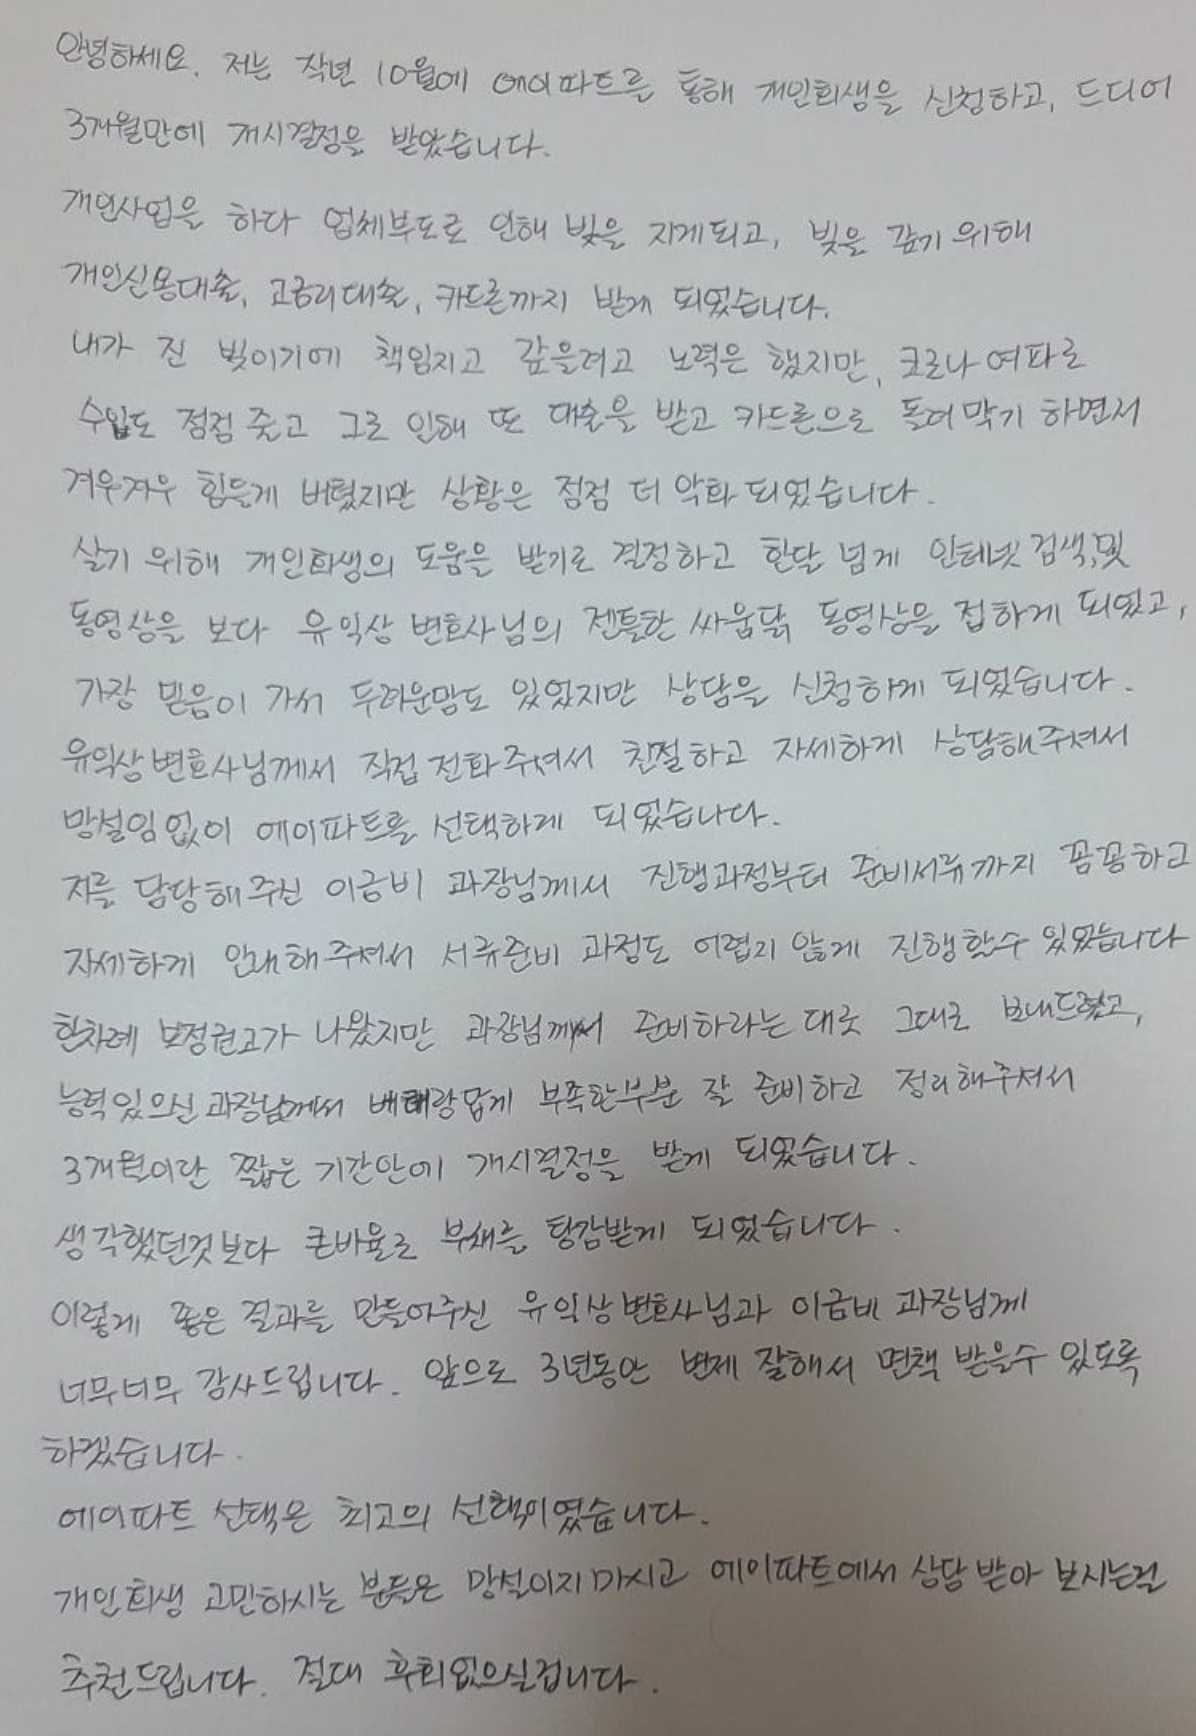 안녕하세요. 저는 작년 10월에 에이파트를 통해 개인회생을 신청하고, 드디어
3개월만에 개시결정을 받았습니다.
개인사업을 하다 업체부도로 인해 빚을 지게되고, 빚을 갚기 위해
개인신용대출, 고금리대출, 카드론까지 받게 되었습니다.
내가 진 빚이기에 책임지고 갚을려고 노력은 했지만, 코로나 여파로
수입도 점점 줄고 그로 인해 또 대출을 받고 카드론으로 돌려막기 하면서
겨우겨우 힘들게 버텼지만 상황은 점점 더 악화 되었습니다.
살기 위해 개인회생의 도움을 받기로 결정하고 한달 넘게 인테넷 검색,및
동영상을 보다 유익상 변호사님의 젠틀한 싸움닭 동영상을 접하게 되었고,
가장 믿음이 가서 두려운맘도 있었지만 상담을 신청하게 되었습니다.
유익상변호사님께서 직접 전화주셔서 친절하고 자세하게 상담해주셔서
망설임없이 에이파트를 선택하게 되었습니다.
저를 담당해주신 이금비 과장님께서 진행과정부터 준비서류까지 꼼꼼하고
자세하게 안내해주셔서 서류준비 과정도 어렵지 않게 진행할수 있었습니다
한차례 보정권고가 나왔지만 과장님께서 준비하라는 대로 그대로 보내드렸고,
능력있으신 과장님께서 베테랑답게 부족한부분 잘 준비하고 정리해주셔서
3개월이란 짧은 기간안에 개시결정을 받게 되었습니다.
생각했던것보다 큰비율로 부채를 탕감받게 되었습니다.
이렇게 좋은 결과를 만들어주신 유익상변호사님과 이금비 과장님께
너무너무 감사드립니다. 앞으로 3년동안 변제 잘해서 면책 받을수 있도록
하겠습니다.
에이파트 선택은 최고의 선택이였습니다.
개인회생 고민하시는 분들은 망설이지마시고 에이파트에서 상담받아 보시는걸
추천드립니다. 절대 후회없으실겁니다.